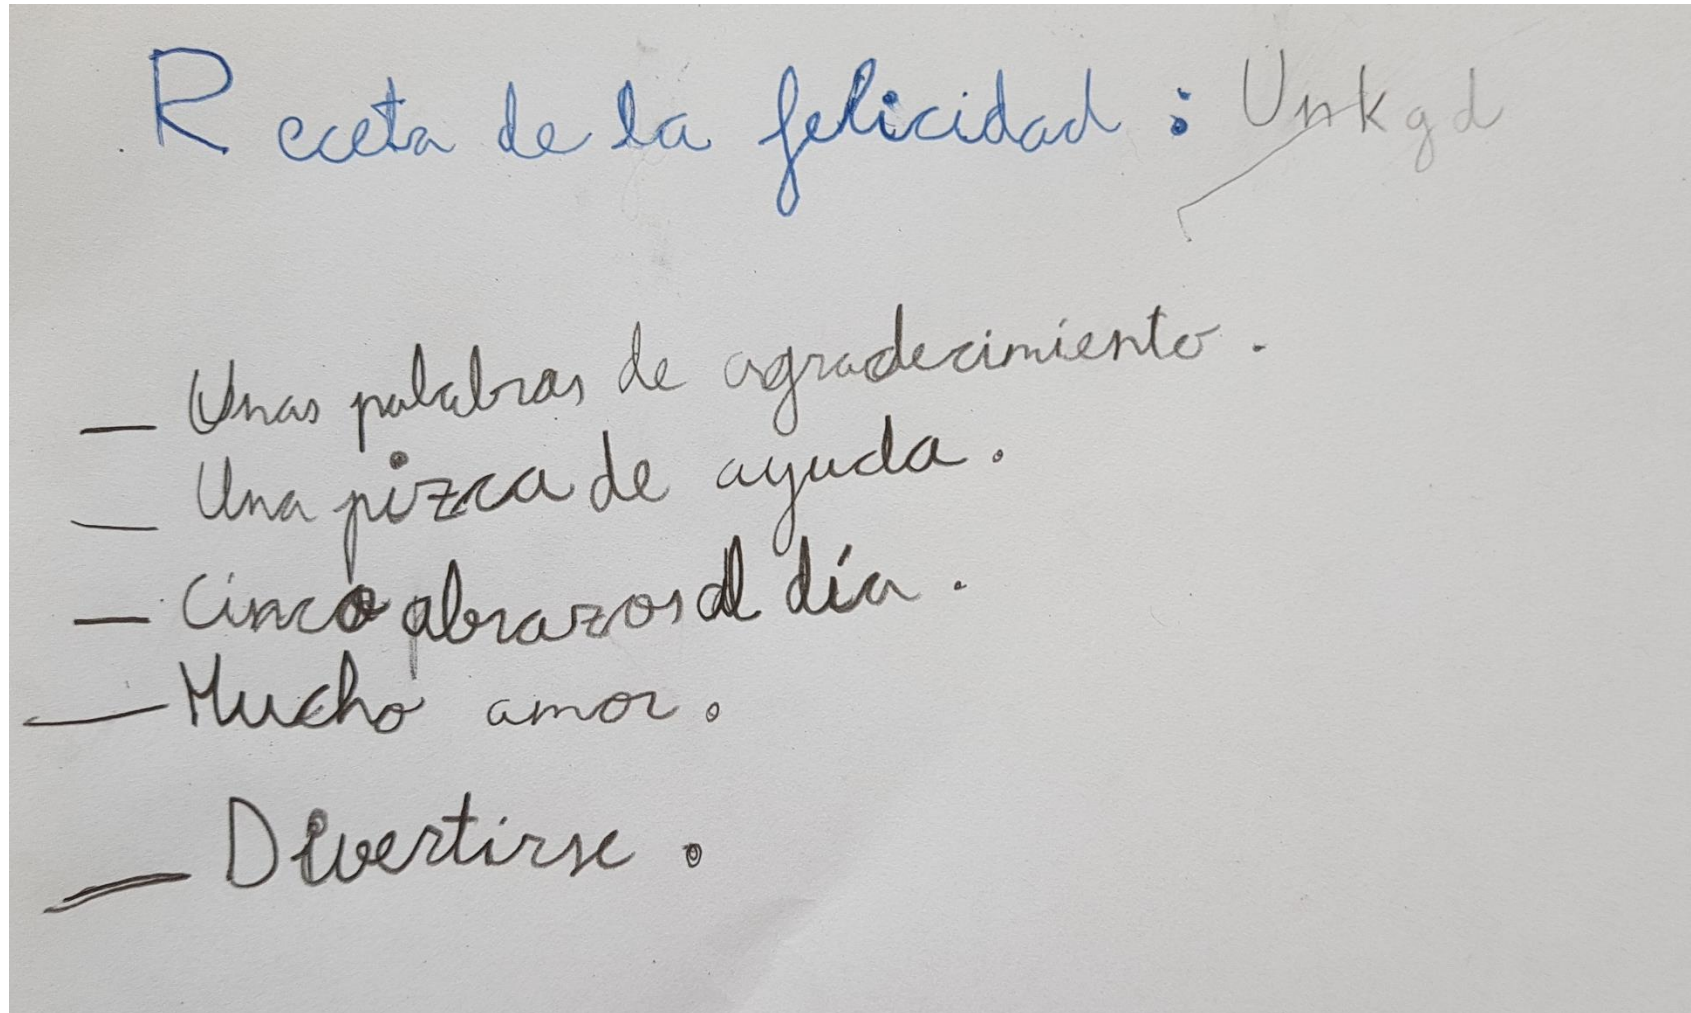 Receta de la felicidad: Un kg d
_ Unas palabras de agradecimiento.
_ Una pizca de ayuda.
_ Cinco abrazos al día.
_ Mucho amor.
_ Divertirse.